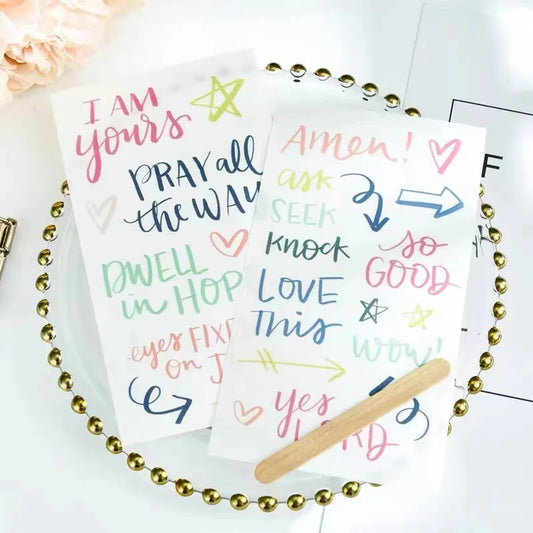 I AM
yours
PRAY all
the WAY
DWELL
in HOP
eyes FIX
on J
Amen!
ask
SEEK
KNOCK
so
GOOD
LOVE
THIS
wow!
yes
LORD
F